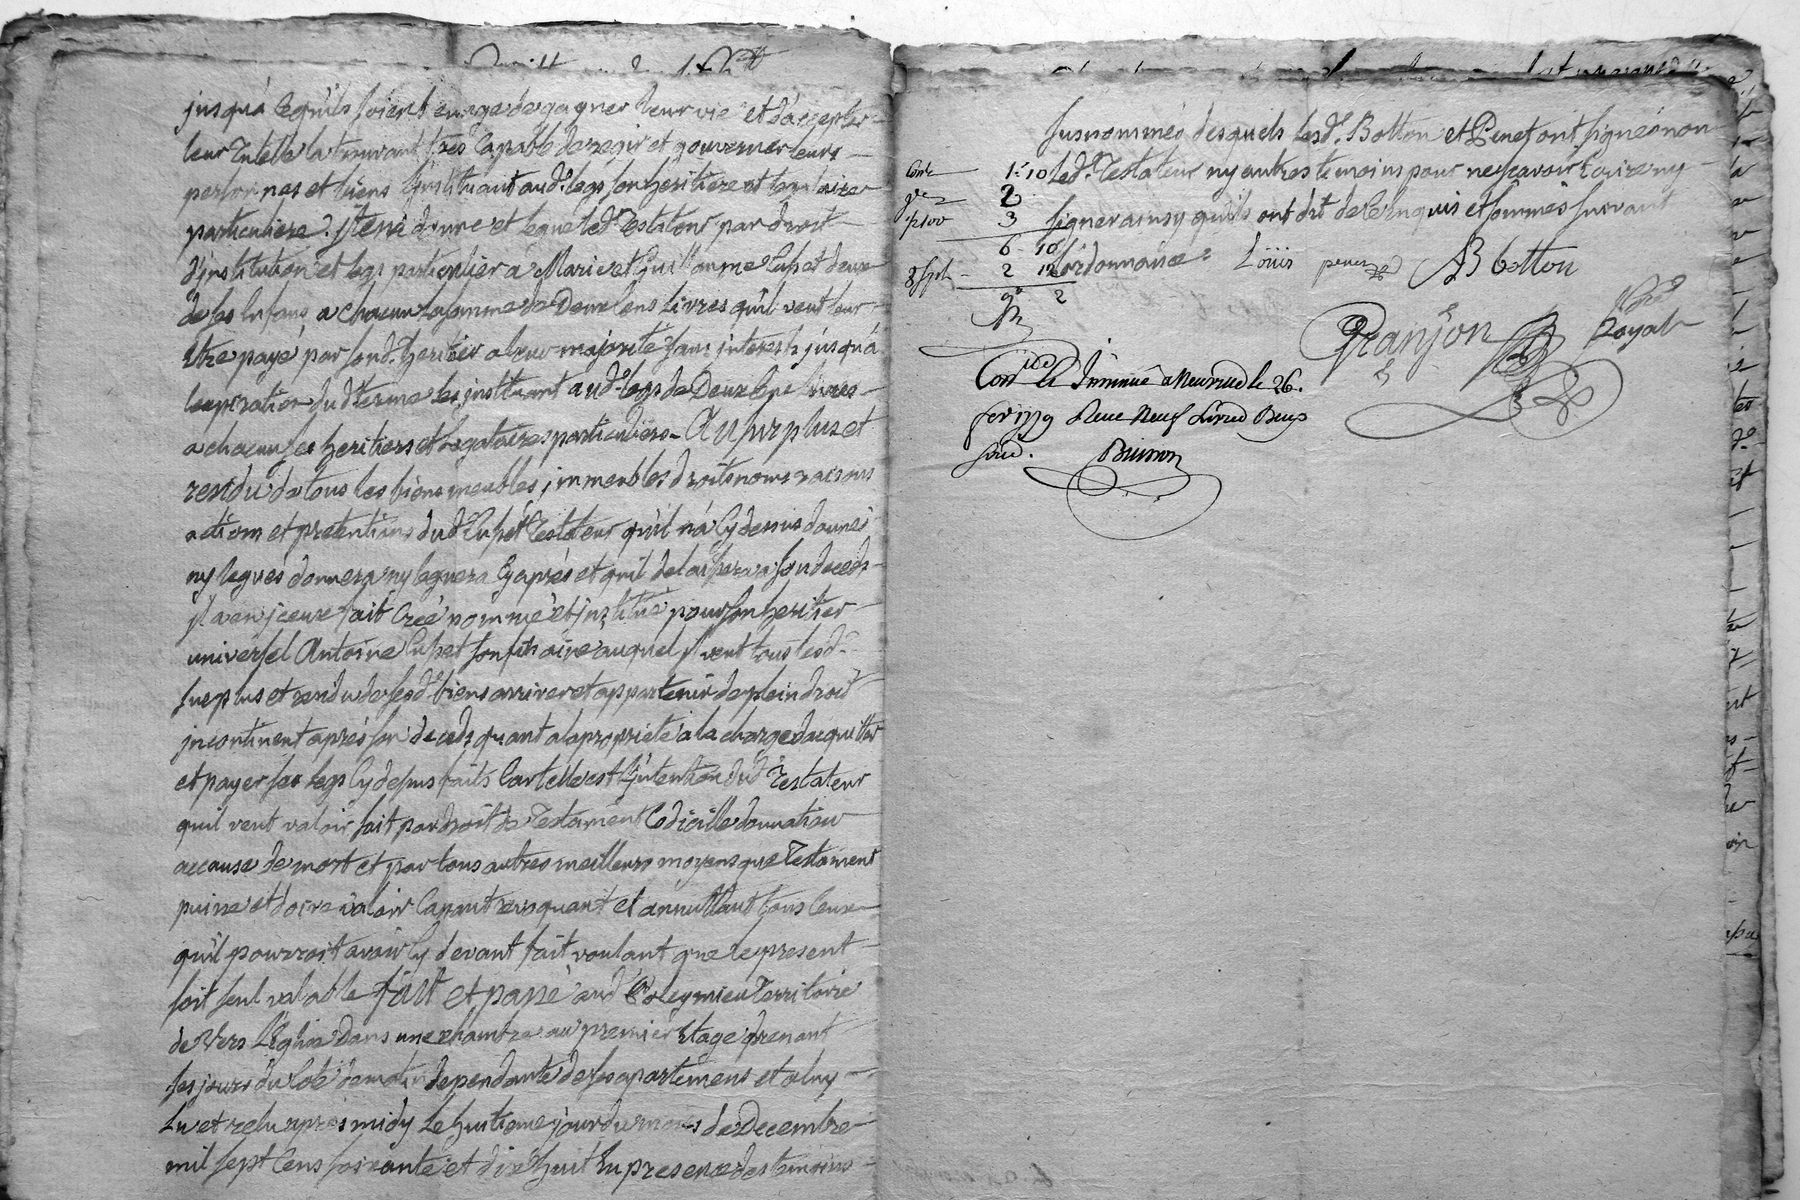 jusqu'a cequils soient en age de gagner leur vie et d'accepter
leur Tutelle la trouvant tres Capable de regir et gouverner leurs
personnes et biens Linstituant aud.t legs son heritiere et legataire
particuliere. Item donne et legue led.t Testateur par droit
d'institution et legs particulier a Marie et Guillaume Cuset deux
de ses Enfans a chacun La somme de Deux Cens Livres qu'il veut leur
Etre payé par sond.t heritier a leur majorité sans interests jusqu'a
lexpiration dud terme les instituant aud.t legs de Deux Cens livres
a chacun ses heritiers et Legataires particuliers - Au surplus et
residu de tous les biens meubles, immeubles droits noms raisons
actions et pretentions dud.t Cuset Testateur qu'il n'a Cy dessus donnés
ny legués donnera ny leguera Cy aprés et qu'il delaissera a son deceds
il a en iceux fait Créé nommé et institué pour son heritier
universel Antoine Cuset son fils ainé auquel il veut tous lesd.
surplus et residu de sesd.t biens arriver et appartenir de plein droit
incontinent aprés son deceds quant a la proprieté a la charge dacquitter
et payer ses legs Cy dessus faits Car telle est L'intention dud.t Testateur
quil veut valoir soit par droit de Testament Codicille donnation
a cause de mort et par tous autres meilleurs moyens que Testament
puisse et doive valoir Cassant revoquant et annullant tous Ceux
qu'il pourroit avoir Cy devant fait voulant que le present
soit seul valable fait et passé aud.t Coleymieu Territoire
de Vers L'Eglise Dans une chambre au premier Etage prenant
ses jours du Coté de matin dependante de ses apartemens et a luy
Lu et relu aprés midy Le huitieme jour du mois de Decembre
mil sept Cens soixante et dix huit En presence des temoins
susnommés desquels lesd.t Botton et Penet ont signé & non
Led.t Testateur ny autres temoins pour ne scavoir Ecrire ny
signer ainsy quils ont dit de Ce enquis et sommés suivant
Lordonnance. Loüis penet AB botton
Granjon N.re Royal
1 : 10
2
3
6 - 10
8 s.pl - 2 12
9# 2
Con.lé & insinué a Meximieux le 26.
fer 1779 Reçu Neuf Livres Deux
sous. Buisson